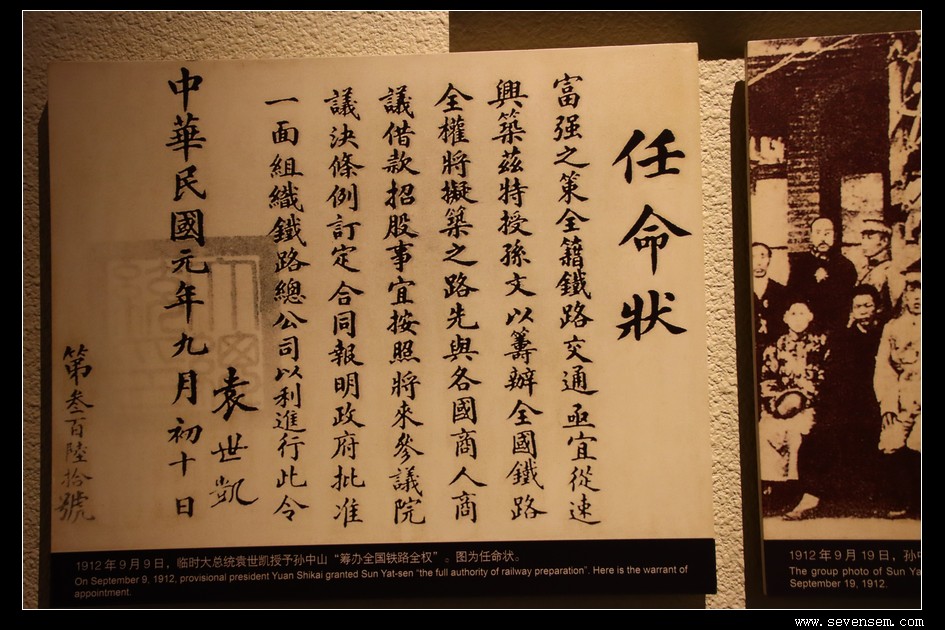 任命狀
富强之策全籍鐵路交通亟宜從速
興築茲特授孫文以籌辦全國鐵路
全權將擬築之路先與各國商人商
議借款招股事宜按照將來參議院
議決條例訂定合同報明政府批准
一面組織鐵路總公司以利進行此令
袁世凱
中華民國元年九月初十日
第叁百陸拾號
1912年9月9日，临时大总统袁世凯授予孙中山“筹办全国铁路全权”。图为任命状。
On September 9, 1912, provisional president Yuan Shikai granted Sun Yat-sen “the full authority of railway preparation”. Here is the warrant of
appointment.
1912年9月19日，孙中
The group photo of Sun Ya
September 19, 1912.
www.sevensem.com